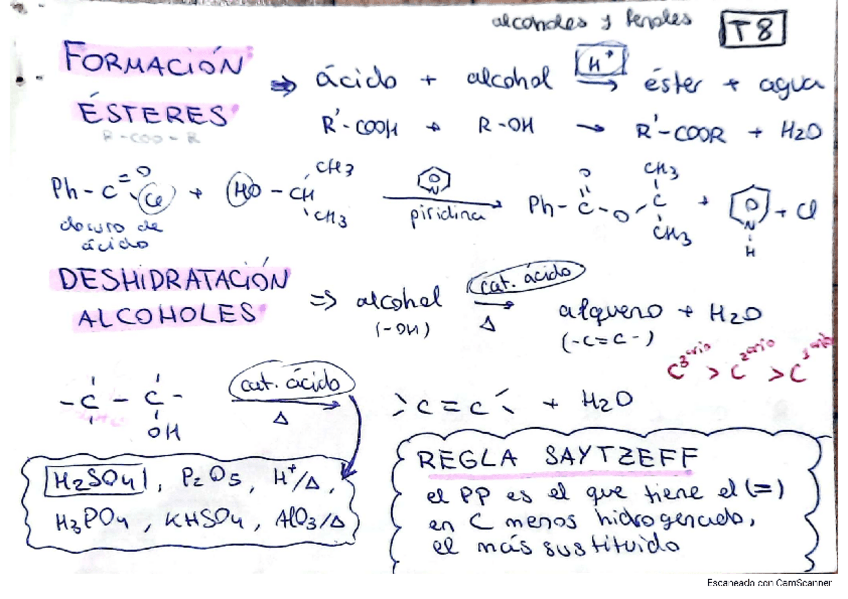 alcoholes y fenoles T8
FORMACIÓN ÉSTERES ⇒ ácido + alcohol H⁺→ éster + agua
R-COO-R
R'-COOH + R-OH → R'-COOR + H2O
Ph-C=O Cl + HO-CH CH3 CH3 N piridina → Ph-C-O-C O CH3 CH3 + N H + Cl
cloruro de
ácido
DESHIDRATACIÓN ALCOHOLES ⇒ alcohol cat. ácido → Δ alqueno + H2O
(-OH) (-C=C-)
C3ario > C2ario > C1ario
-C-C- OH cat. ácido → Δ >C=C< + H2O
H2SO4, P2O5, H⁺/Δ,
H3PO4, KHSO4, AlO3/Δ
REGLA SAYTZEFF
el PP es el que tiene el (=)
en C menos hidrogenado,
el más sustituido
Escaneado con CamScanner